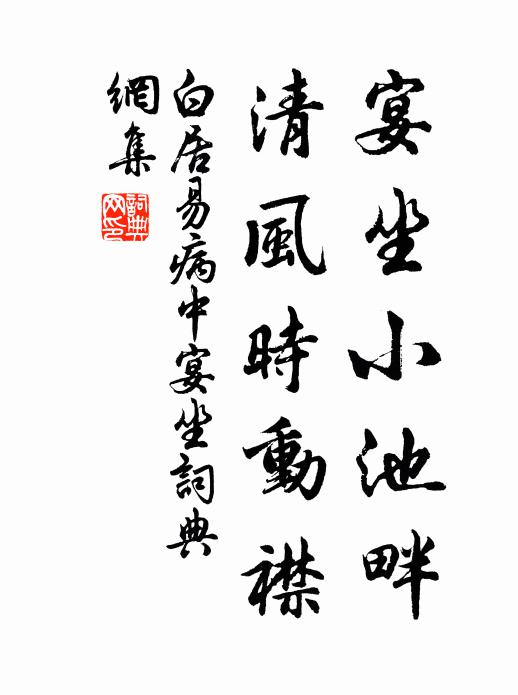 宴坐小池畔
清風時動襟
白居易病中宴坐詞典
網集
詞典网印